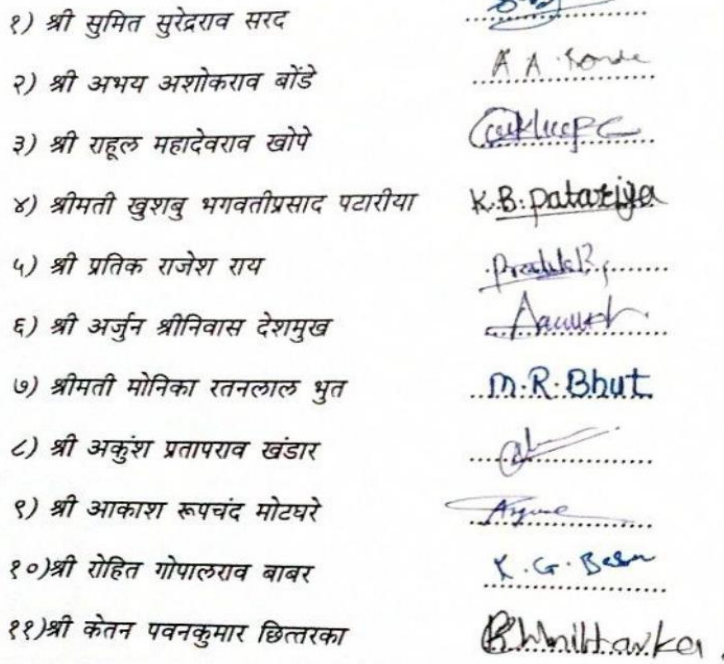 १) श्री सुमित सुरेद्रराव सरद
२) श्री अभय अशोकराव बोंडे A A
३) श्री राहूल महादेवराव खोपे
४) श्रीमती खुशबु भगवतीप्रसाद पटारीया K.B. Patariya
५) श्री प्रतिक राजेश राय
६) श्री अर्जुन श्रीनिवास देशमुख
७) श्रीमती मोनिका रतनलाल भुत M.R. Bhut
८) श्री अकुंश प्रतापराव खंडार
९) श्री आकाश रूपचंद मोटघरे
१०)श्री रोहित गोपालराव बाबर
११)श्री केतन पवनकुमार छित्तरका